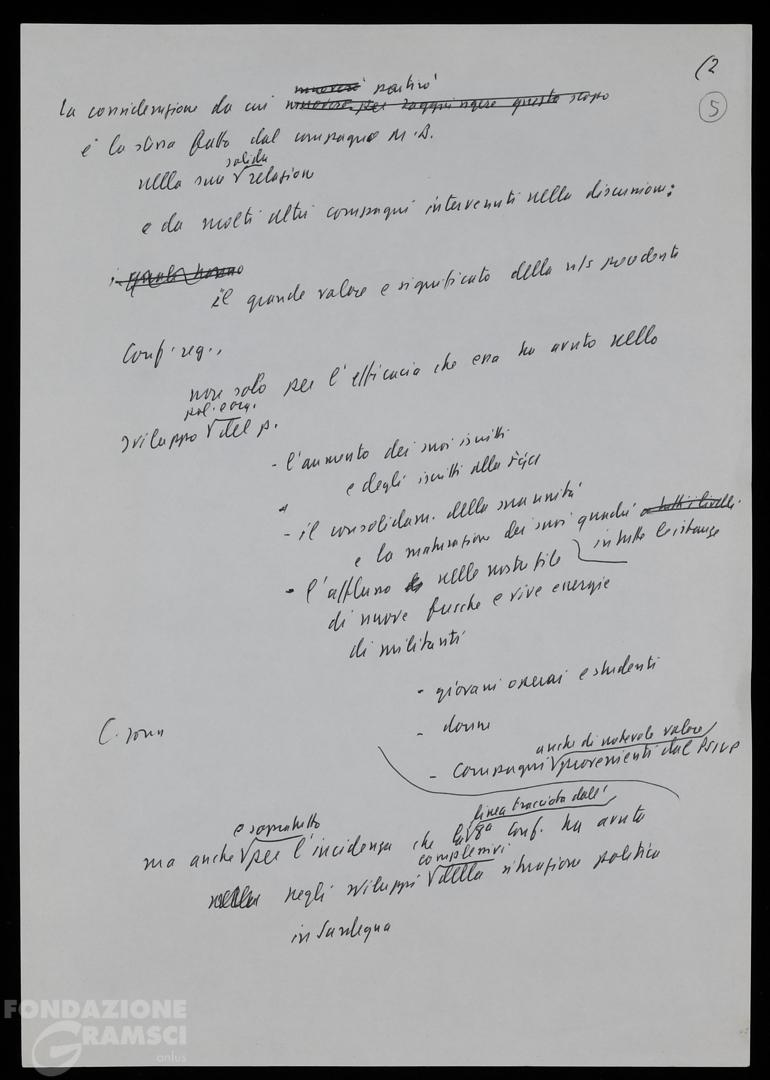 (2
5
muoverò partirò
La considerazione da cui muovere per raggiungere questo scopo
è la stessa fatta dal compagno M.B.
solida
nella sua relazione
e da molti altri compagni intervenuti nella discussione:
il grande valore e significato della n/s precedente
Conf. reg.,
non solo per l'efficacia che essa ha avuto nello
pol. e org.
sviluppo del p.
- l'aumento dei suoi iscritti
e degli iscritti alla Fgci
- il consolidam. della sua unità
e la maturazione dei suoi quadri a tutti i livelli
in tutte le istanze
- l'afflusso nelle nostre file
di nuove fresche e vive energie
di militanti
- giovani operai e studenti
- donne
anche di notevole valore
- compagni provenienti dal Psiup
linea tracciata dall'
e soprattutto
ma anche per l'incidenza che la Conf. ha avuto
complessivi
nella negli sviluppi della situazione politica
in Sardegna
FONDAZIONE
GRAMSCI
onlus